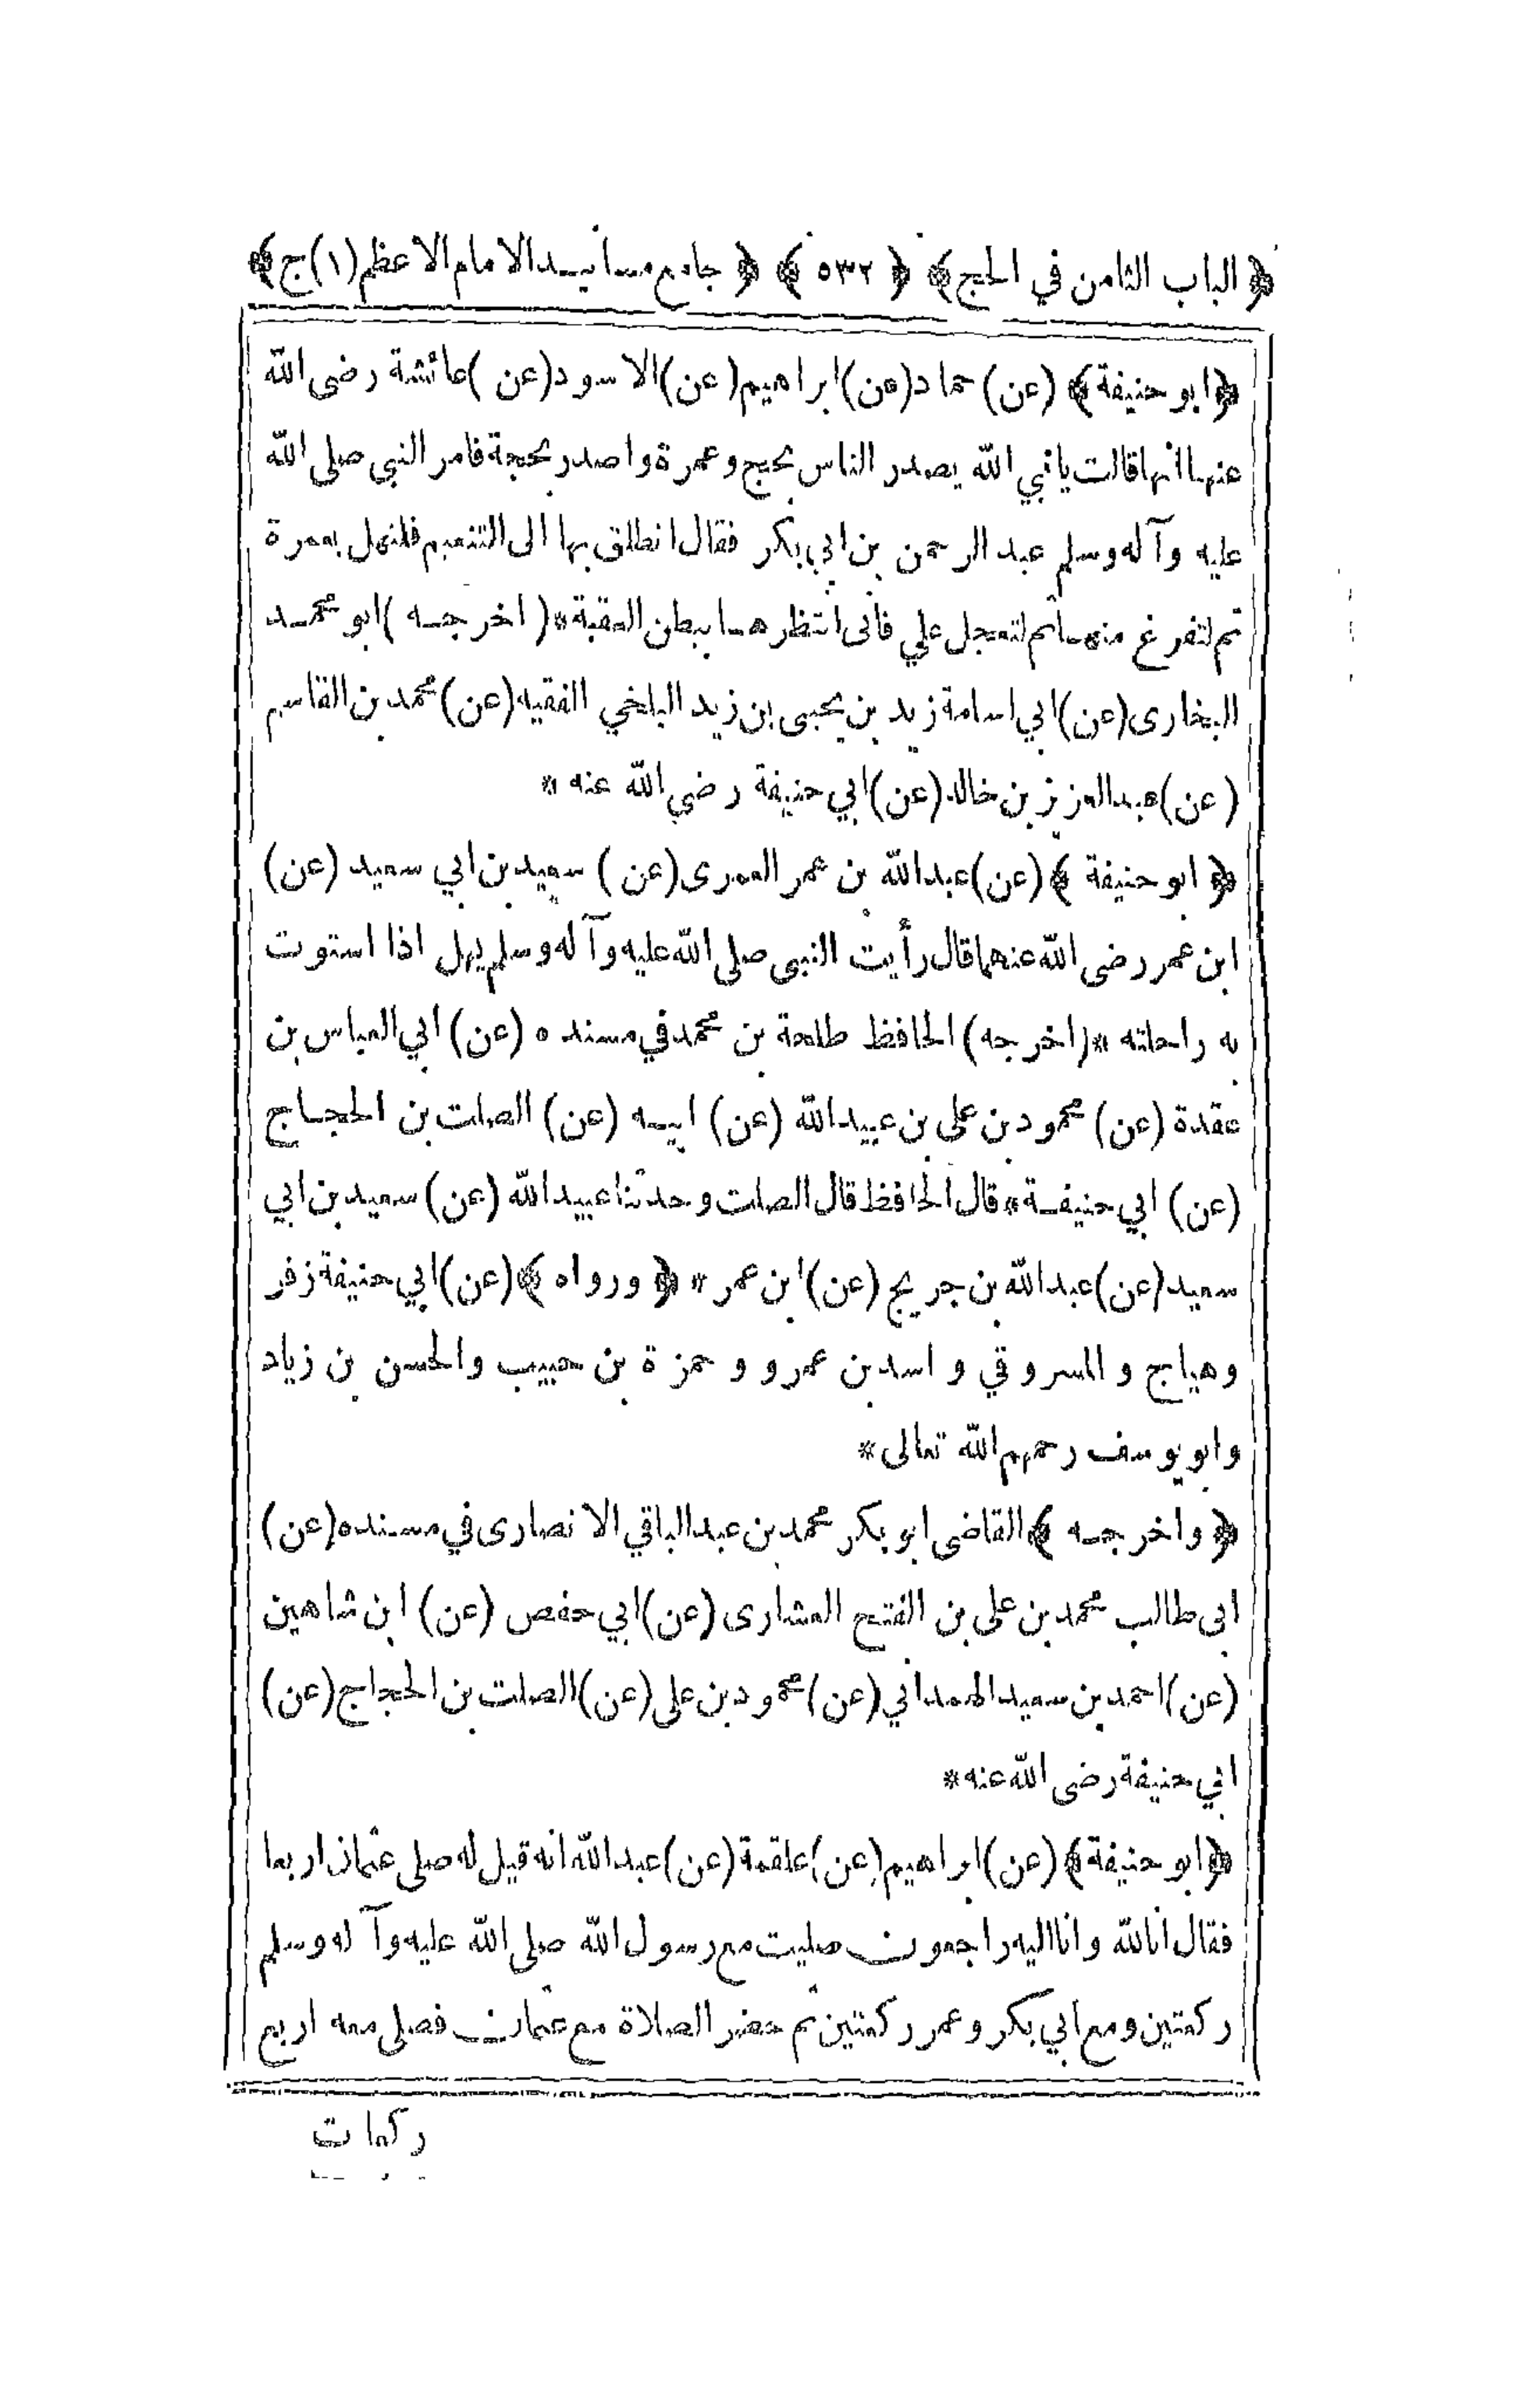 ﴿ الباب الثامن في الحج ﴾ ﴿ ٥٣٢ ﴾ ﴿ جامع مسانيد الامام الاعظم (١) ج ﴾
﴿ ابو حنيفة ﴾ (عن) حماد (عن) ابراهيم (عن) الاسود (عن) عائشة رضى الله
عنها انها قالت يا نبي الله يصدر الناس بحج وعمرة واصدر بحجة فامر النبى صلى الله
عليه وآله وسلم عبد الرحمن بن ابي بكر فقال انطلق بها الى التنعيم فلتهل بعمرة
ثم لتفرغ منها ثم لتعجل علي فانى انتظرها ببطن العقبة * (اخرجه) ابو محمد
البخارى (عن) ابي اسامة زيد بن يحيى بن زيد البلخي الفقيه (عن) محمد بن القاسم
(عن) عبد العزيز بن خالد (عن) ابي حنيفة رضي الله عنه *
﴿ ابو حنيفة ﴾ (عن) عبد الله بن عمر العمرى (عن) سعيد بن ابي سعيد (عن)
ابن عمر رضى الله عنهما قال رأيت النبى صلى الله عليه وآله وسلم يهل اذا استوت
به راحلته * (اخرجه) الحافظ طلحة بن محمد في مسنده (عن) ابي العباس بن
عقدة (عن) محمود بن على بن عبيد الله (عن) ابيه (عن) الصلت بن الحجاج
(عن) ابي حنيفة * قال الحافظ قال الصلت وحدثنا عبيد الله (عن) سعيد بن ابي
سعيد (عن) عبد الله بن جريج (عن) ابن عمر * ﴿ ورواه ﴾ (عن) ابي حنيفة زفر
وهياج و المسروقي و اسد بن عمرو و حمزة بن حبيب والحسن بن زياد
وابو يوسف رحمهم الله تعالى *
﴿ واخرجه ﴾ القاضى ابو بكر محمد بن عبد الباقي الانصارى في مسنده (عن)
ابى طالب محمد بن على بن الفتح العشارى (عن) ابي حفص (عن) ابن شاهين
(عن) احمد بن سعيد الهمداني (عن) محمود بن على (عن) الصلت بن الحجاج (عن)
ابي حنيفة رضى الله عنه *
﴿ ابو حنيفة ﴾ (عن) ابراهيم (عن) علقمة (عن) عبد الله انه قيل له صلى عثمان اربعا
فقال انا لله وانا اليه راجعون صليت مع رسول الله صلى الله عليه وآله وسلم
ركعتين ومع ابي بكر وعمر ركعتين ثم حضر الصلاة مع عثمان فصلى معه اربع
ركعات